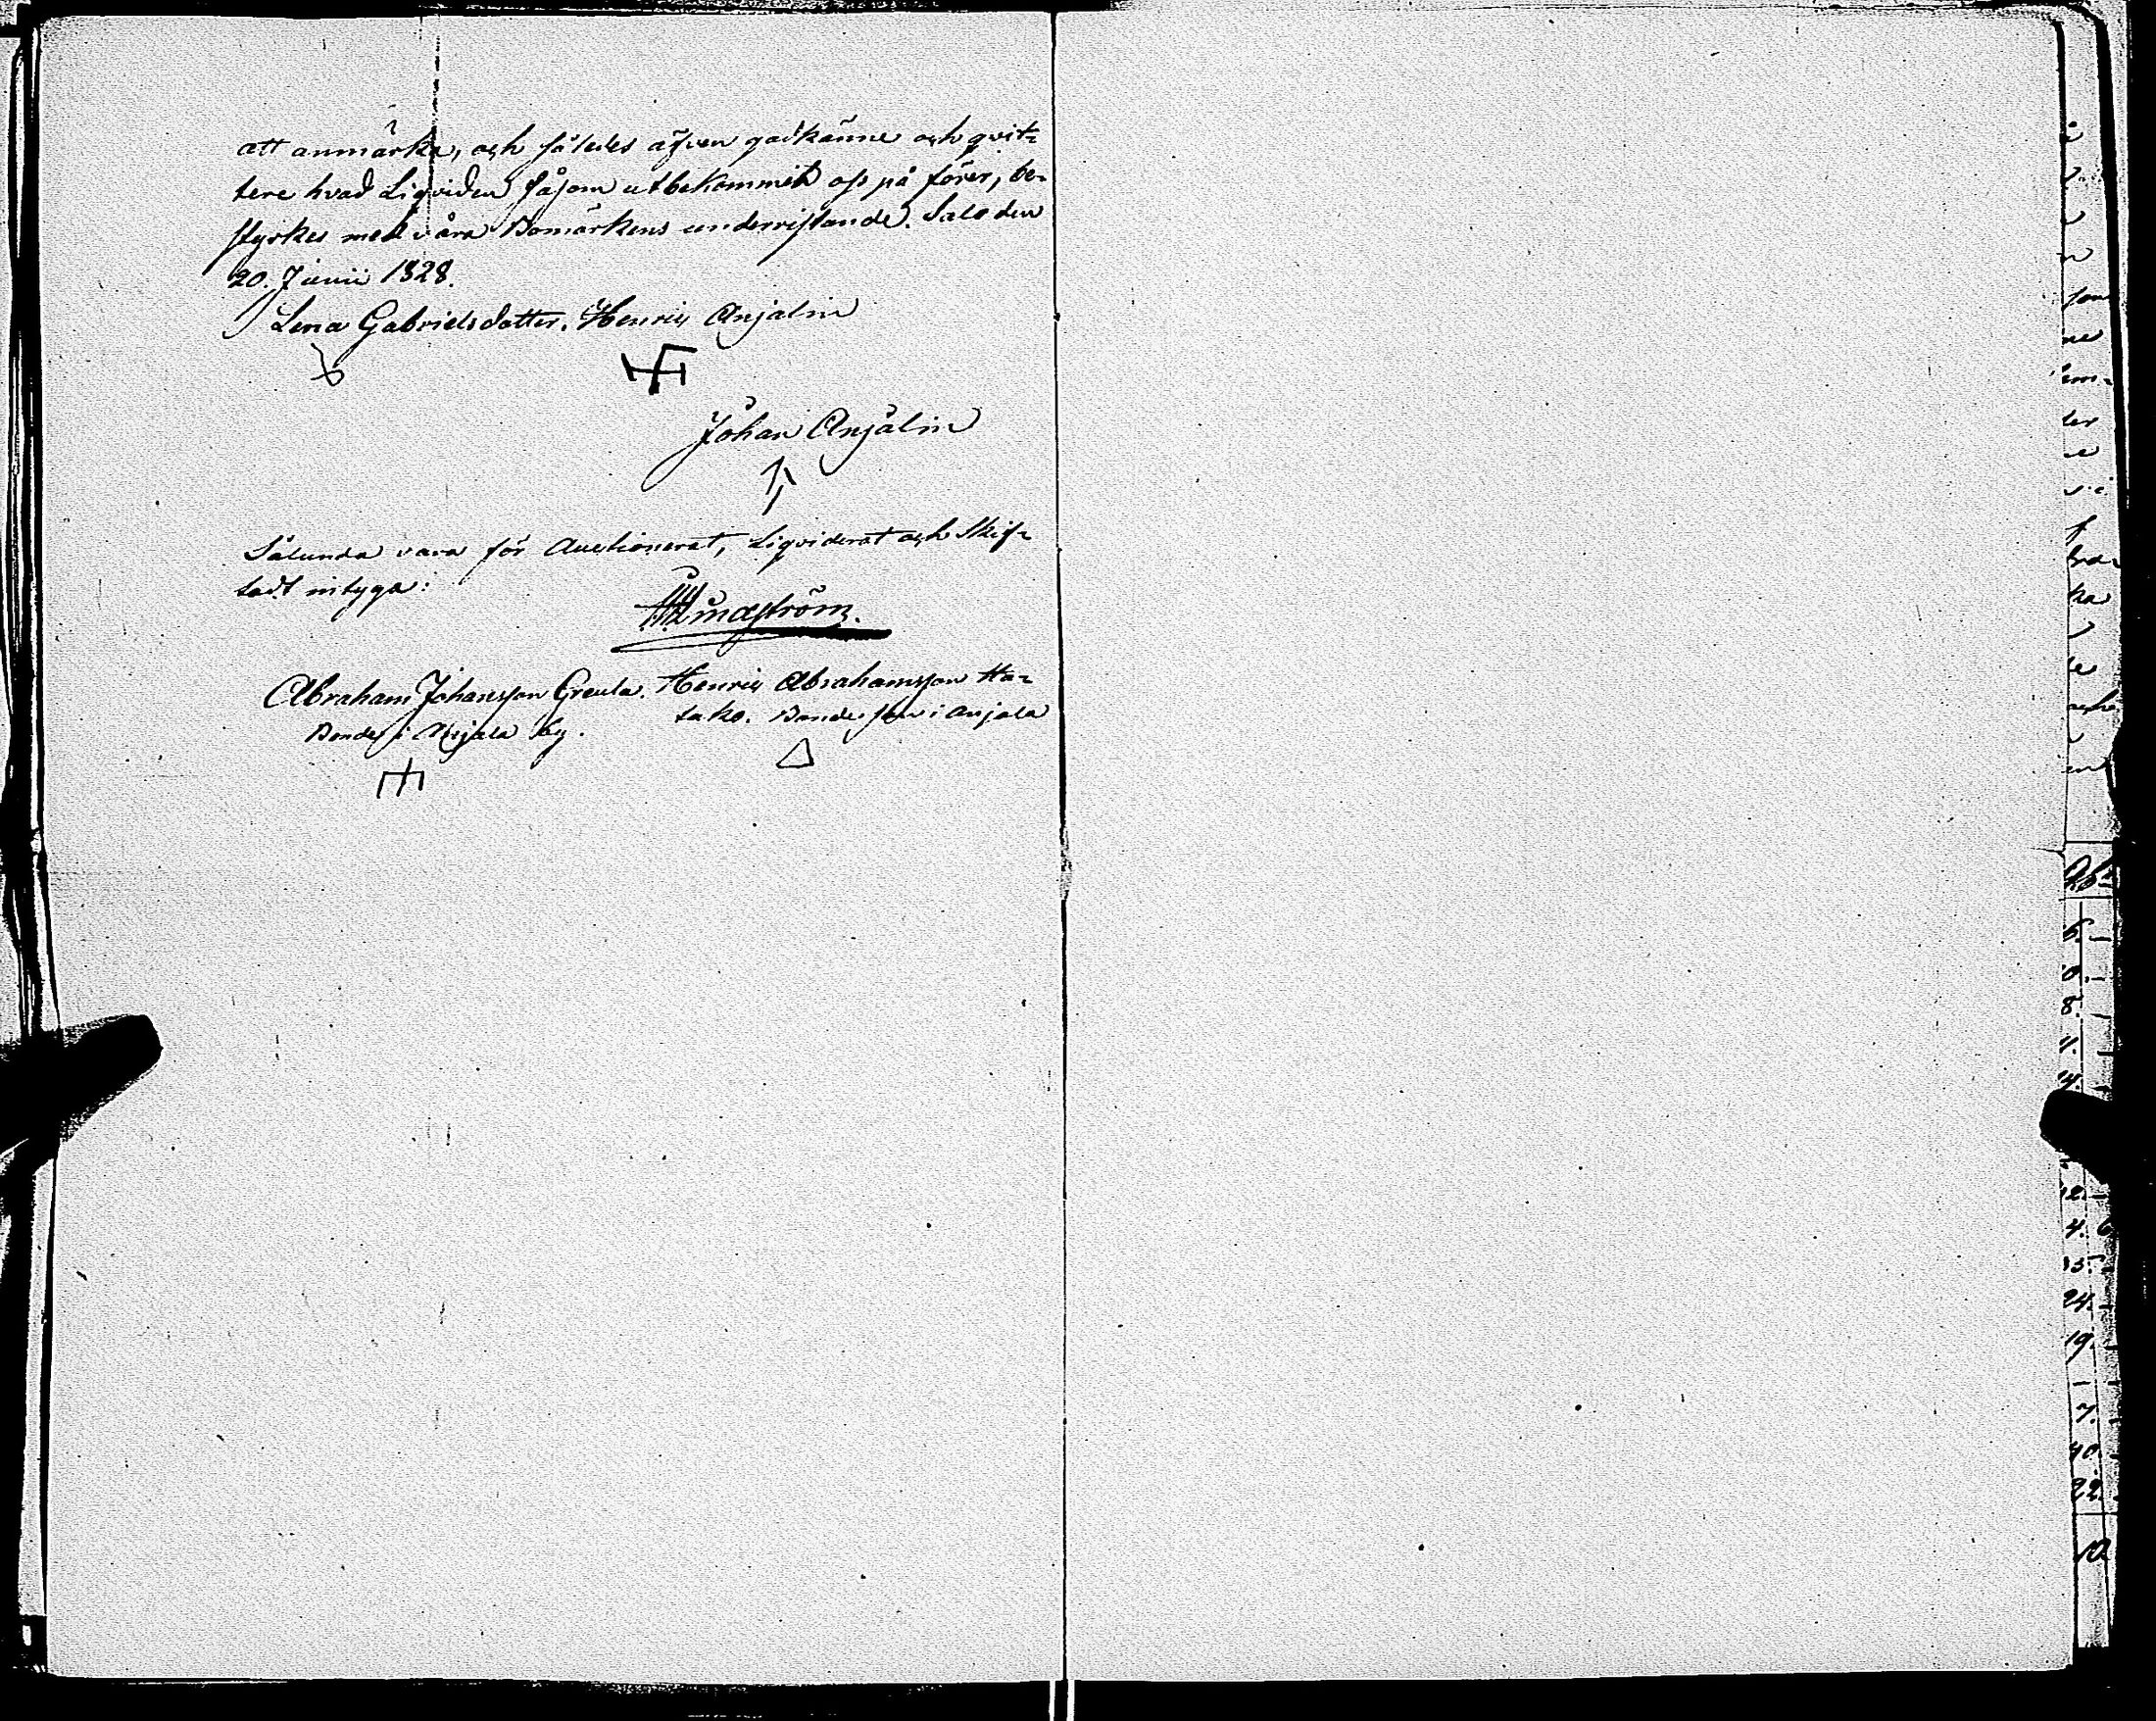 att anmärka, och således äfven godkänne och qvit-
tere hvad Liqviden såsom utbekommit oss på förer, be-
styrkes med våra Bomärkens underristande. Salo den
20. Junii 1828.
Lena Gabrielsdotter. Henric Anjalin
Johan Anjalin
Sålunda vara för Auctionerat, Liqviderat och Skif-
tadt intyga:
Lindström.
Abraham Johansson Greula. Henric Abrahamsson Ha-
tako. Bonde son i Anjala
Bonde i Anjala by.